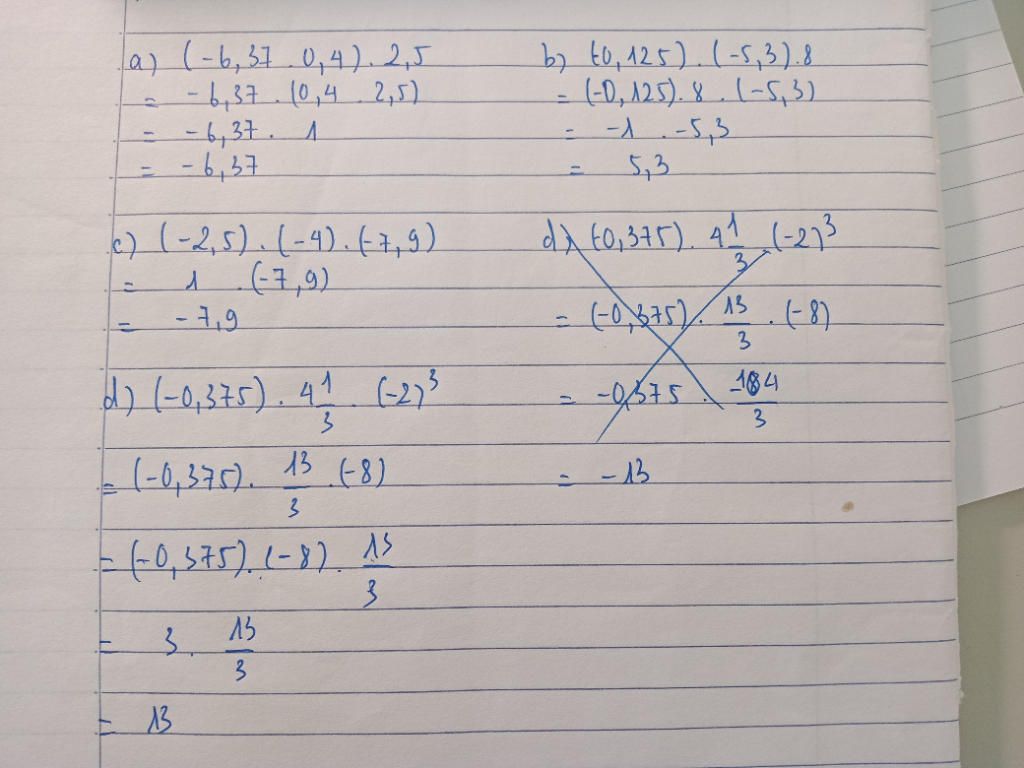 a) (-6,37 . 0,4) . 2,5
= -6,37 . (0,4 . 2,5)
= -6,37 . 1
= -6,37
b) (-0,125) . (-5,3) . 8
= (-0,125) . 8 . (-5,3)
= -1 . -5,3
= 5,3
c) (-2,5) . (-4) . (-7,9)
= 1 . (-7,9)
= -7,9
d) (-0,375) . 4 1/3 . (-2)³
= (-0,375) . 13/3 . (-8)
= -0,375 . -104/3
= -13
d) (-0,375) . 4 1/3 . (-2)³
= (-0,375) . 13/3 . (-8)
= (-0,375) . (-8) . 13/3
= 3 . 13/3
= 13